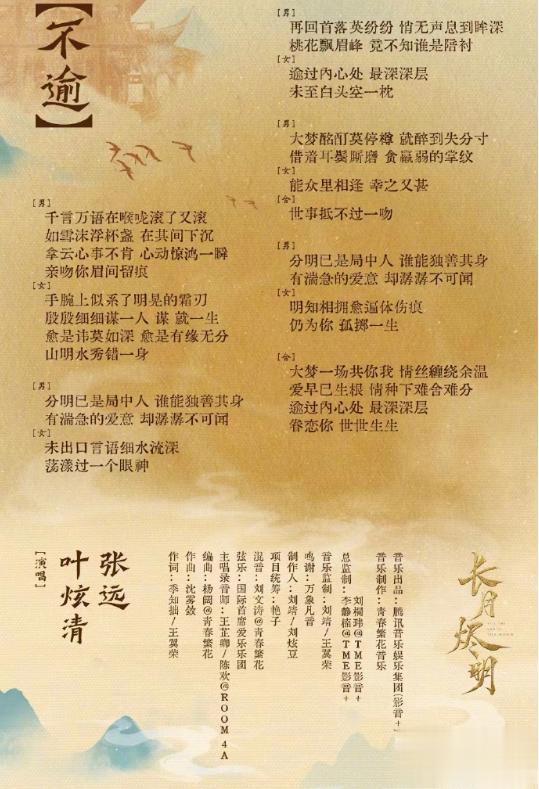 【不逾】
[男]
千言万语在喉咙滚了又滚
如雪沫浮杯盏 在其间下沉
拿云心事不肯 心动惊鸿一瞬
亲吻你眉间留痕
[女]
手腕上似系了明晃的霜刃
殷殷细细谋一人 谋 就一生
愈是讳莫如深 愈是有缘无分
山明水秀错一身
[男]
分明已是局中人 谁能独善其身
有湍急的爱意 却潺潺不可闻
[女]
未出口言语细水流深
荡漾过一个眼神
[男]
再回首落英纷纷 悄无声息到眸深
桃花飘眉峰 竟不知谁是陪衬
[女]
逾过内心处 最深深层
未至白头空一枕
[男]
大梦酩酊莫停樽 就醉到失分寸
借着耳鬓厮磨 贪赢弱的掌纹
[女]
能众里相逢 幸之又甚
[合]
世事抵不过一吻
[男]
分明已是局中人 谁能独善其身
有湍急的爱意 却潺潺不可闻
[女]
明知相拥愈逼体伤痕
仍为你 孤掷一生
[合]
大梦一场共你我 情丝缠绕余温
爱早已生根 情种下难舍难分
逾过内心处 最深深层
眷恋你 世世生生
长月烬明
音乐出品：腾讯音乐娱乐集团(影音+)
音乐制作：青春繁花音乐
刘桐玮@TME影音+
总监制：李静楠@TME影音+
音乐监制：刘靖/王翼荣
鸣谢：万象凡音
制作人：刘靖/刘炫豆
项目统筹：艳子
混音：刘文涛@青春繁花
弦乐：国际首席爱乐乐团
主唱录音师：王芷卿/陈欢@ROOM 4A
编曲：杨阔@青春繁花
作曲：沈雾敛
作词：季知拙/王翼荣
张远
叶炫清
[演唱]